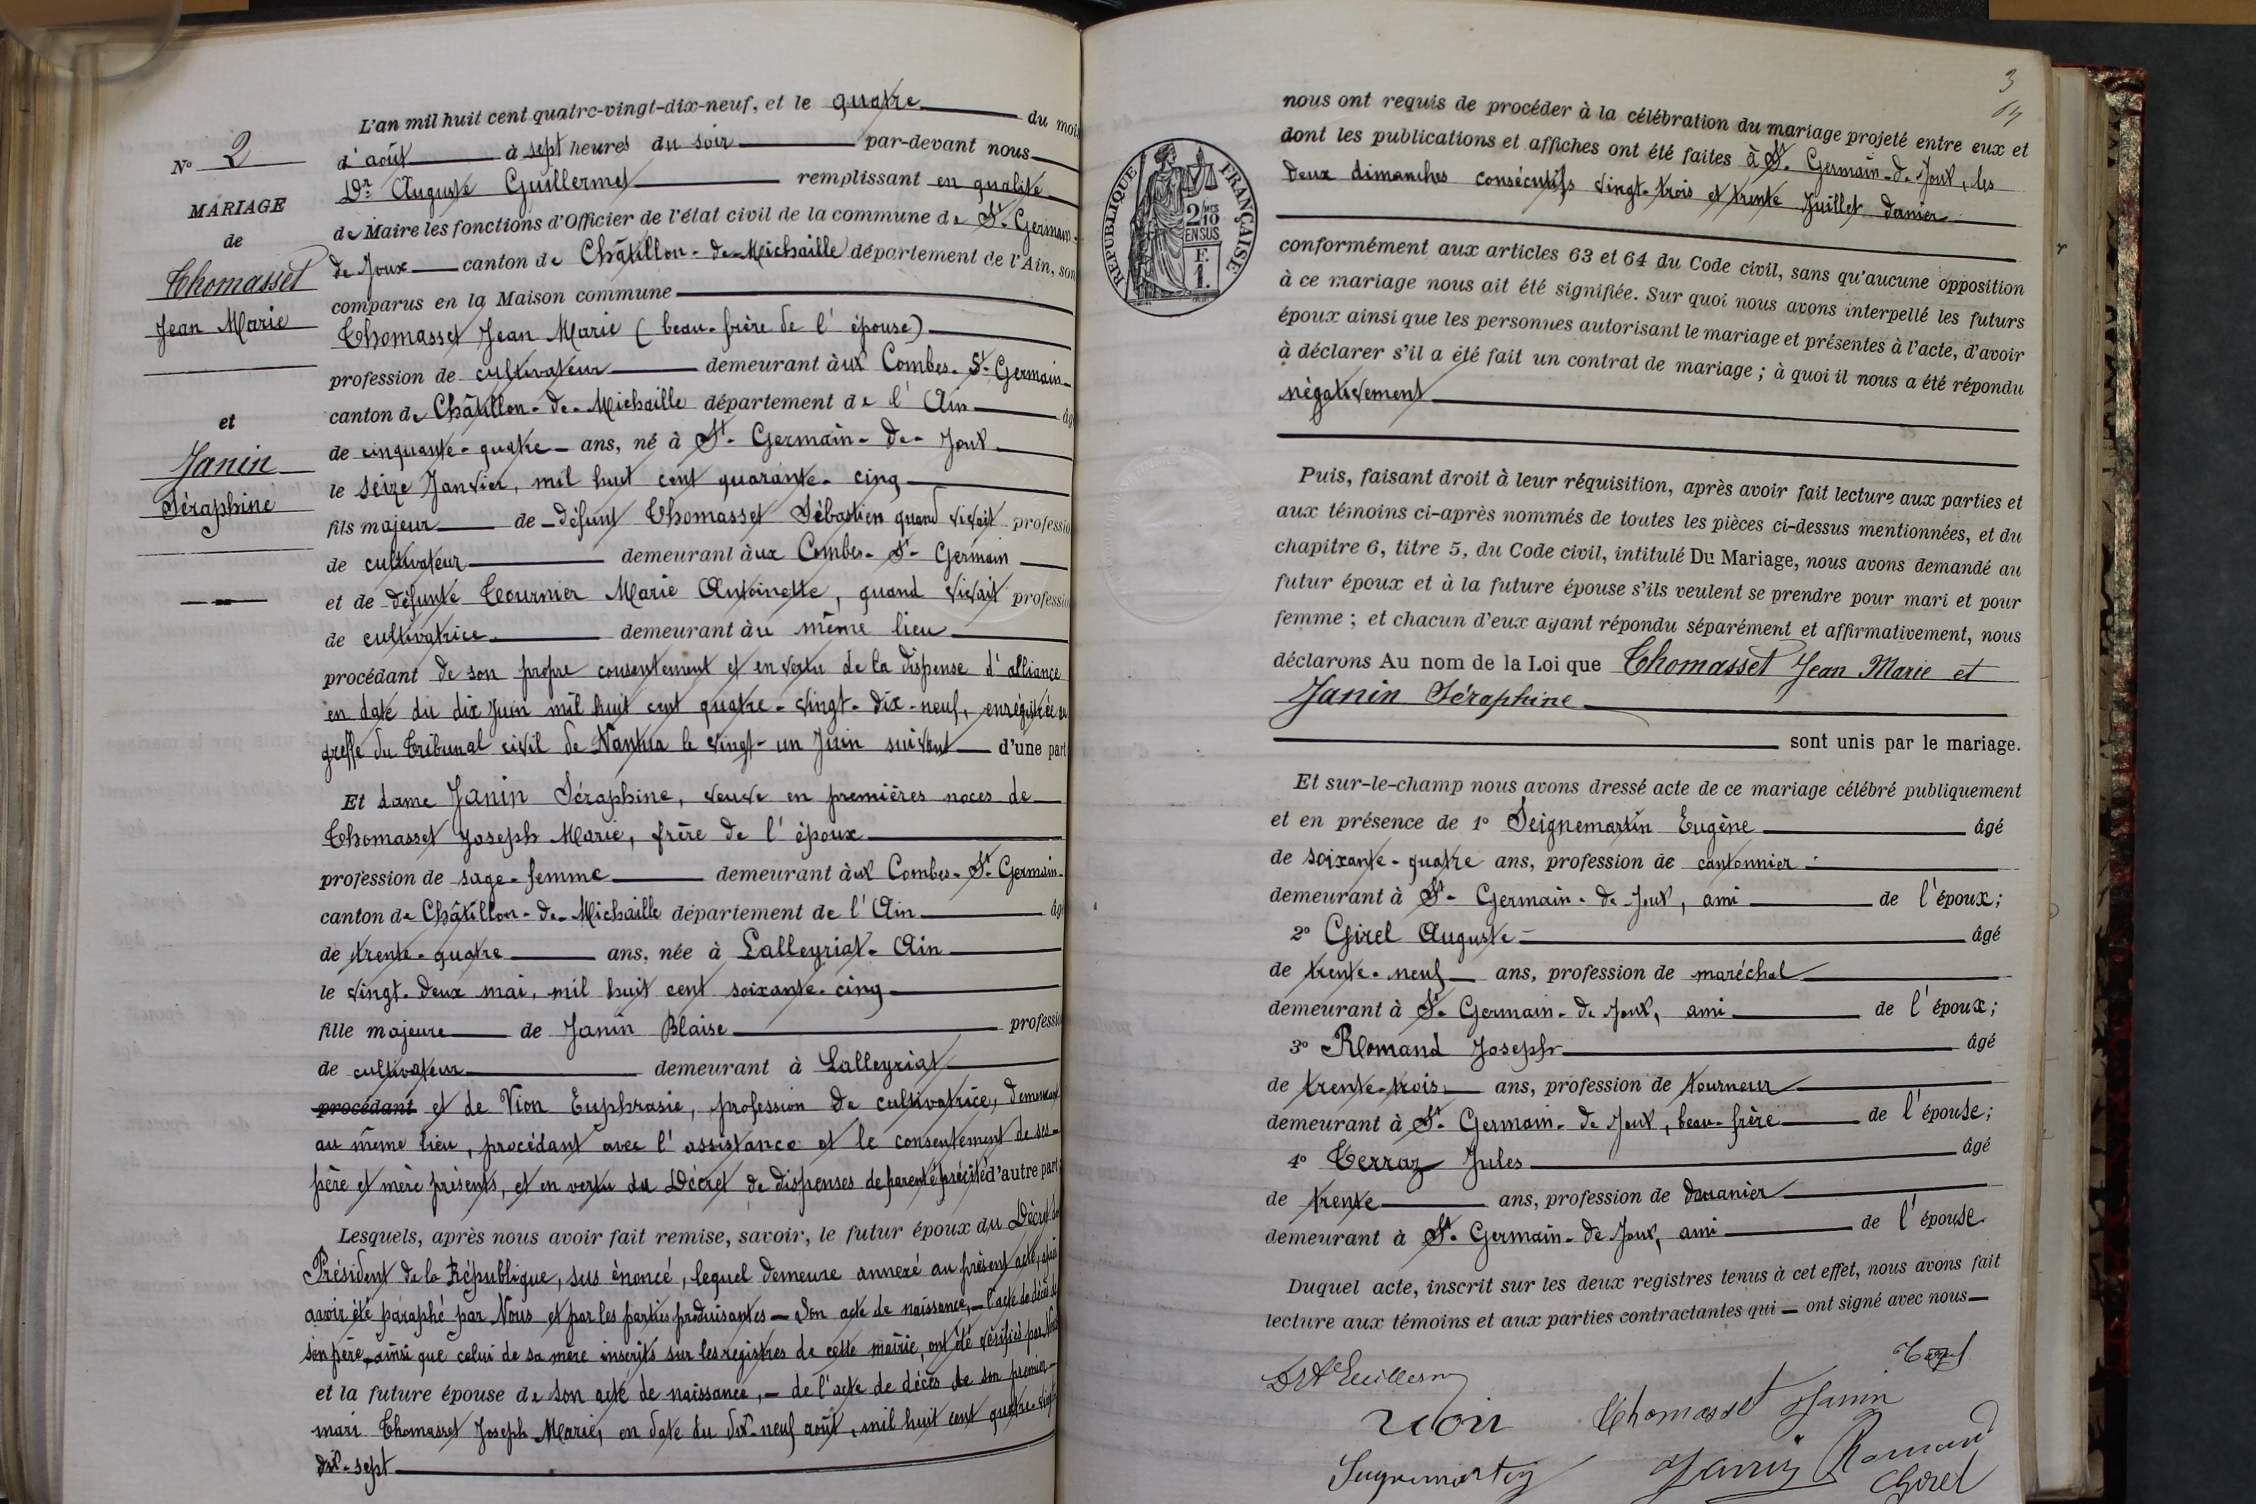 N° 2
MARIAGE
de
Thomasset
Jean Marie
et
Janin
Séraphine
L'an mil huit cent quatre-vingt-dix-neuf, et le quatre du mois
d'août à sept heures du soir par-devant nous
Dr Auguste Guillermet remplissant en qualité
de Maire les fonctions d'Officier de l'état civil de la commune de St. Germain-
de Joux canton de Châtillon-de-Michaille département de l'Ain, son
comparus en la Maison commune
Thomasset Jean Marie (beau-frère de l'épouse)
profession de cultivateur demeurant àux Combes-St-Germain-
canton de Châtillon-de-Michaille département de l'Ain âg
de cinquante-quatre ans, né à St-Germain-de-Joux
le seize Janvier, mil huit cent quarante-cinq
fils majeur de défunt Thomasset Sébastien quand vivait professio
de cultivateur demeurant àux Combes-St-Germain
et de défunte Tournier Marie Antoinette, quand vivait professio
de cultivatrice demeurant àu même lieu
procédant de son propre consentement et en vertu de la dispense d'alliance
en date du dix Juin mil huit cent quatre-vingt-dix-neuf, enregistrée au
greffe du Tribunal civil de Nantua le vingt-un Juin suivant d'une part
Et dame Janin Séraphine, veuve en premières noces de
Thomasset Joseph Marie, frère de l'époux
profession de sage-femme demeurant àux Combes-St-Germain-
canton de Châtillon-de-Michaille département de l'Ain âg
de trente-quatre ans, née à Lalleyriat-Ain
le vingt-deux mai, mil huit cent soixante-cinq
fille majeure de Janin Blaise professio
de cultivateur demeurant à Lalleyriat
procédant et de Vion Euphrasie, profession de cultivatrice, demeurant
au même lieu, procédant avec l'assistance et le consentement de ses
père et mère présents, et en vertu du Décret de dispenses de parenté précité d'autre part
Lesquels, après nous avoir fait remise, savoir, le futur époux du Décret du
Président de la République, sus énoncé, lequel demeure annexé au présent acte, après
avoir été paraphé par Nous et par les parties produisantes - Son acte de naissance, - l'acte de décès de
son père, ainsi que celui de sa mère inscrits sur les registres de cette mairie, ont été vérifiés par Nous
et la future épouse de son acte de naissance, - de l'acte de décès de son premier
mari Thomasset Joseph Marie, en date du dix-neuf août, mil huit cent quatre-vingt
dix-sept
3
RÉPUBLIQUE FRANÇAISE
2 MES
10
EN SUS
F.
1.
nous ont requis de procéder à la célébration du mariage projeté entre eux et
dont les publications et affiches ont été faites à St. Germain-de-Joux, les
deux dimanches consécutifs vingt-trois et trente Juillet dernier
conformément aux articles 63 et 64 du Code civil, sans qu'aucune opposition
à ce mariage nous ait été signifiée. Sur quoi nous avons interpellé les futurs
époux ainsi que les personnes autorisant le mariage et présentes à l'acte, d'avoir
à déclarer s'il a été fait un contrat de mariage ; à quoi il nous a été répondu
négativement
Puis, faisant droit à leur réquisition, après avoir fait lecture aux parties et
aux témoins ci-après nommés de toutes les pièces ci-dessus mentionnées, et du
chapitre 6, titre 5, du Code civil, intitulé Du Mariage, nous avons demandé au
futur époux et à la future épouse s'ils veulent se prendre pour mari et pour
femme ; et chacun d'eux ayant répondu séparément et affirmativement, nous
déclarons Au nom de la Loi que Thomasset Jean Marie et
Janin Séraphine
sont unis par le mariage.
Et sur-le-champ nous avons dressé acte de ce mariage célébré publiquement
et en présence de 1° Seignemartin Eugène âgé
de soixante-quatre ans, profession de cantonnier
demeurant à St-Germain-de-Joux, ami de l'époux;
2° Girel Auguste âgé
de trente-neuf ans, profession de maréchal
demeurant à St-Germain-de-Joux, ami de l'époux;
3° Romand Joseph âgé
de trente-trois ans, profession de tourneur
demeurant à St-Germain-de-Joux, beau-frère de l'épouse;
4° Terraz Jules âgé
de trente ans, profession de douanier
demeurant à St-Germain-de-Joux, ami de l'épouse.
Duquel acte, inscrit sur les deux registres tenus à cet effet, nous avons fait
lecture aux témoins et aux parties contractantes qui ont signé avec nous
Thomasset Janin
Janin Romand
Girel